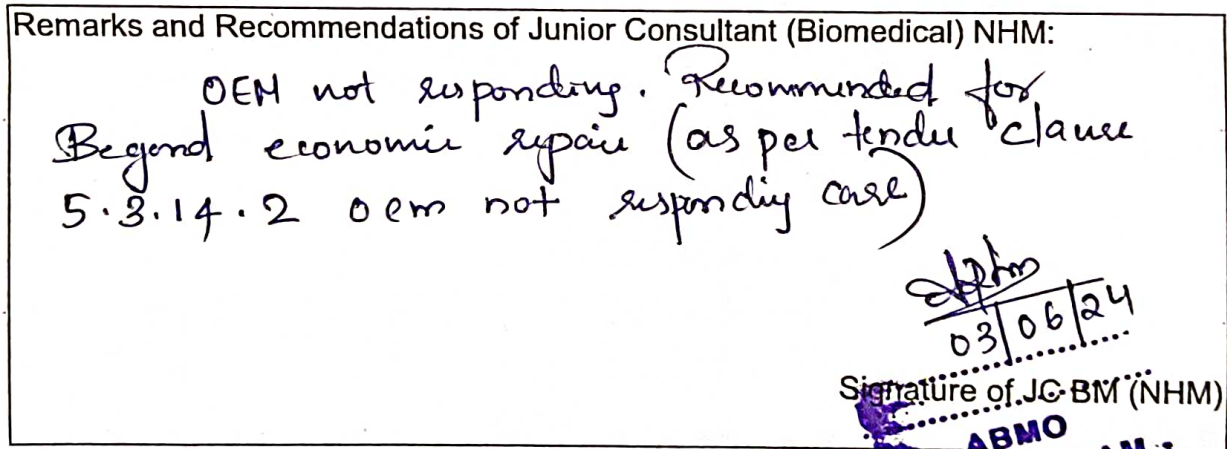 Remarks and Recommendations of Junior Consultant (Biomedical) NHM:
OEM not responding. Recommended for
Begond economic repair (as per tender clause
5.3.14.2 oem not responding case)
03/06/24
Signature of JC-BM (NHM)
ABMO